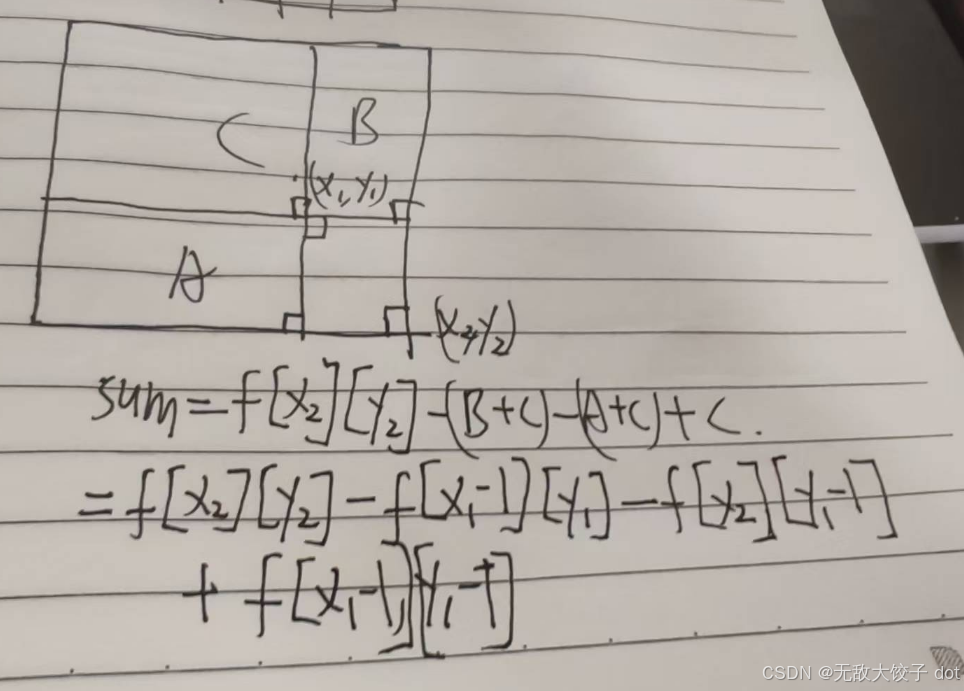 C
B
(x₁, y₁)
A
(x₂, y₂)
sum = f[x₂][y₂] - (B+C) - (A+C) + C.
= f[x₂][y₂] - f[x₁-1][y₁] - f[x₂][y₁-1]
+ f[x₁-1][y₁-1]
CSDN @无敌大饺子 dot